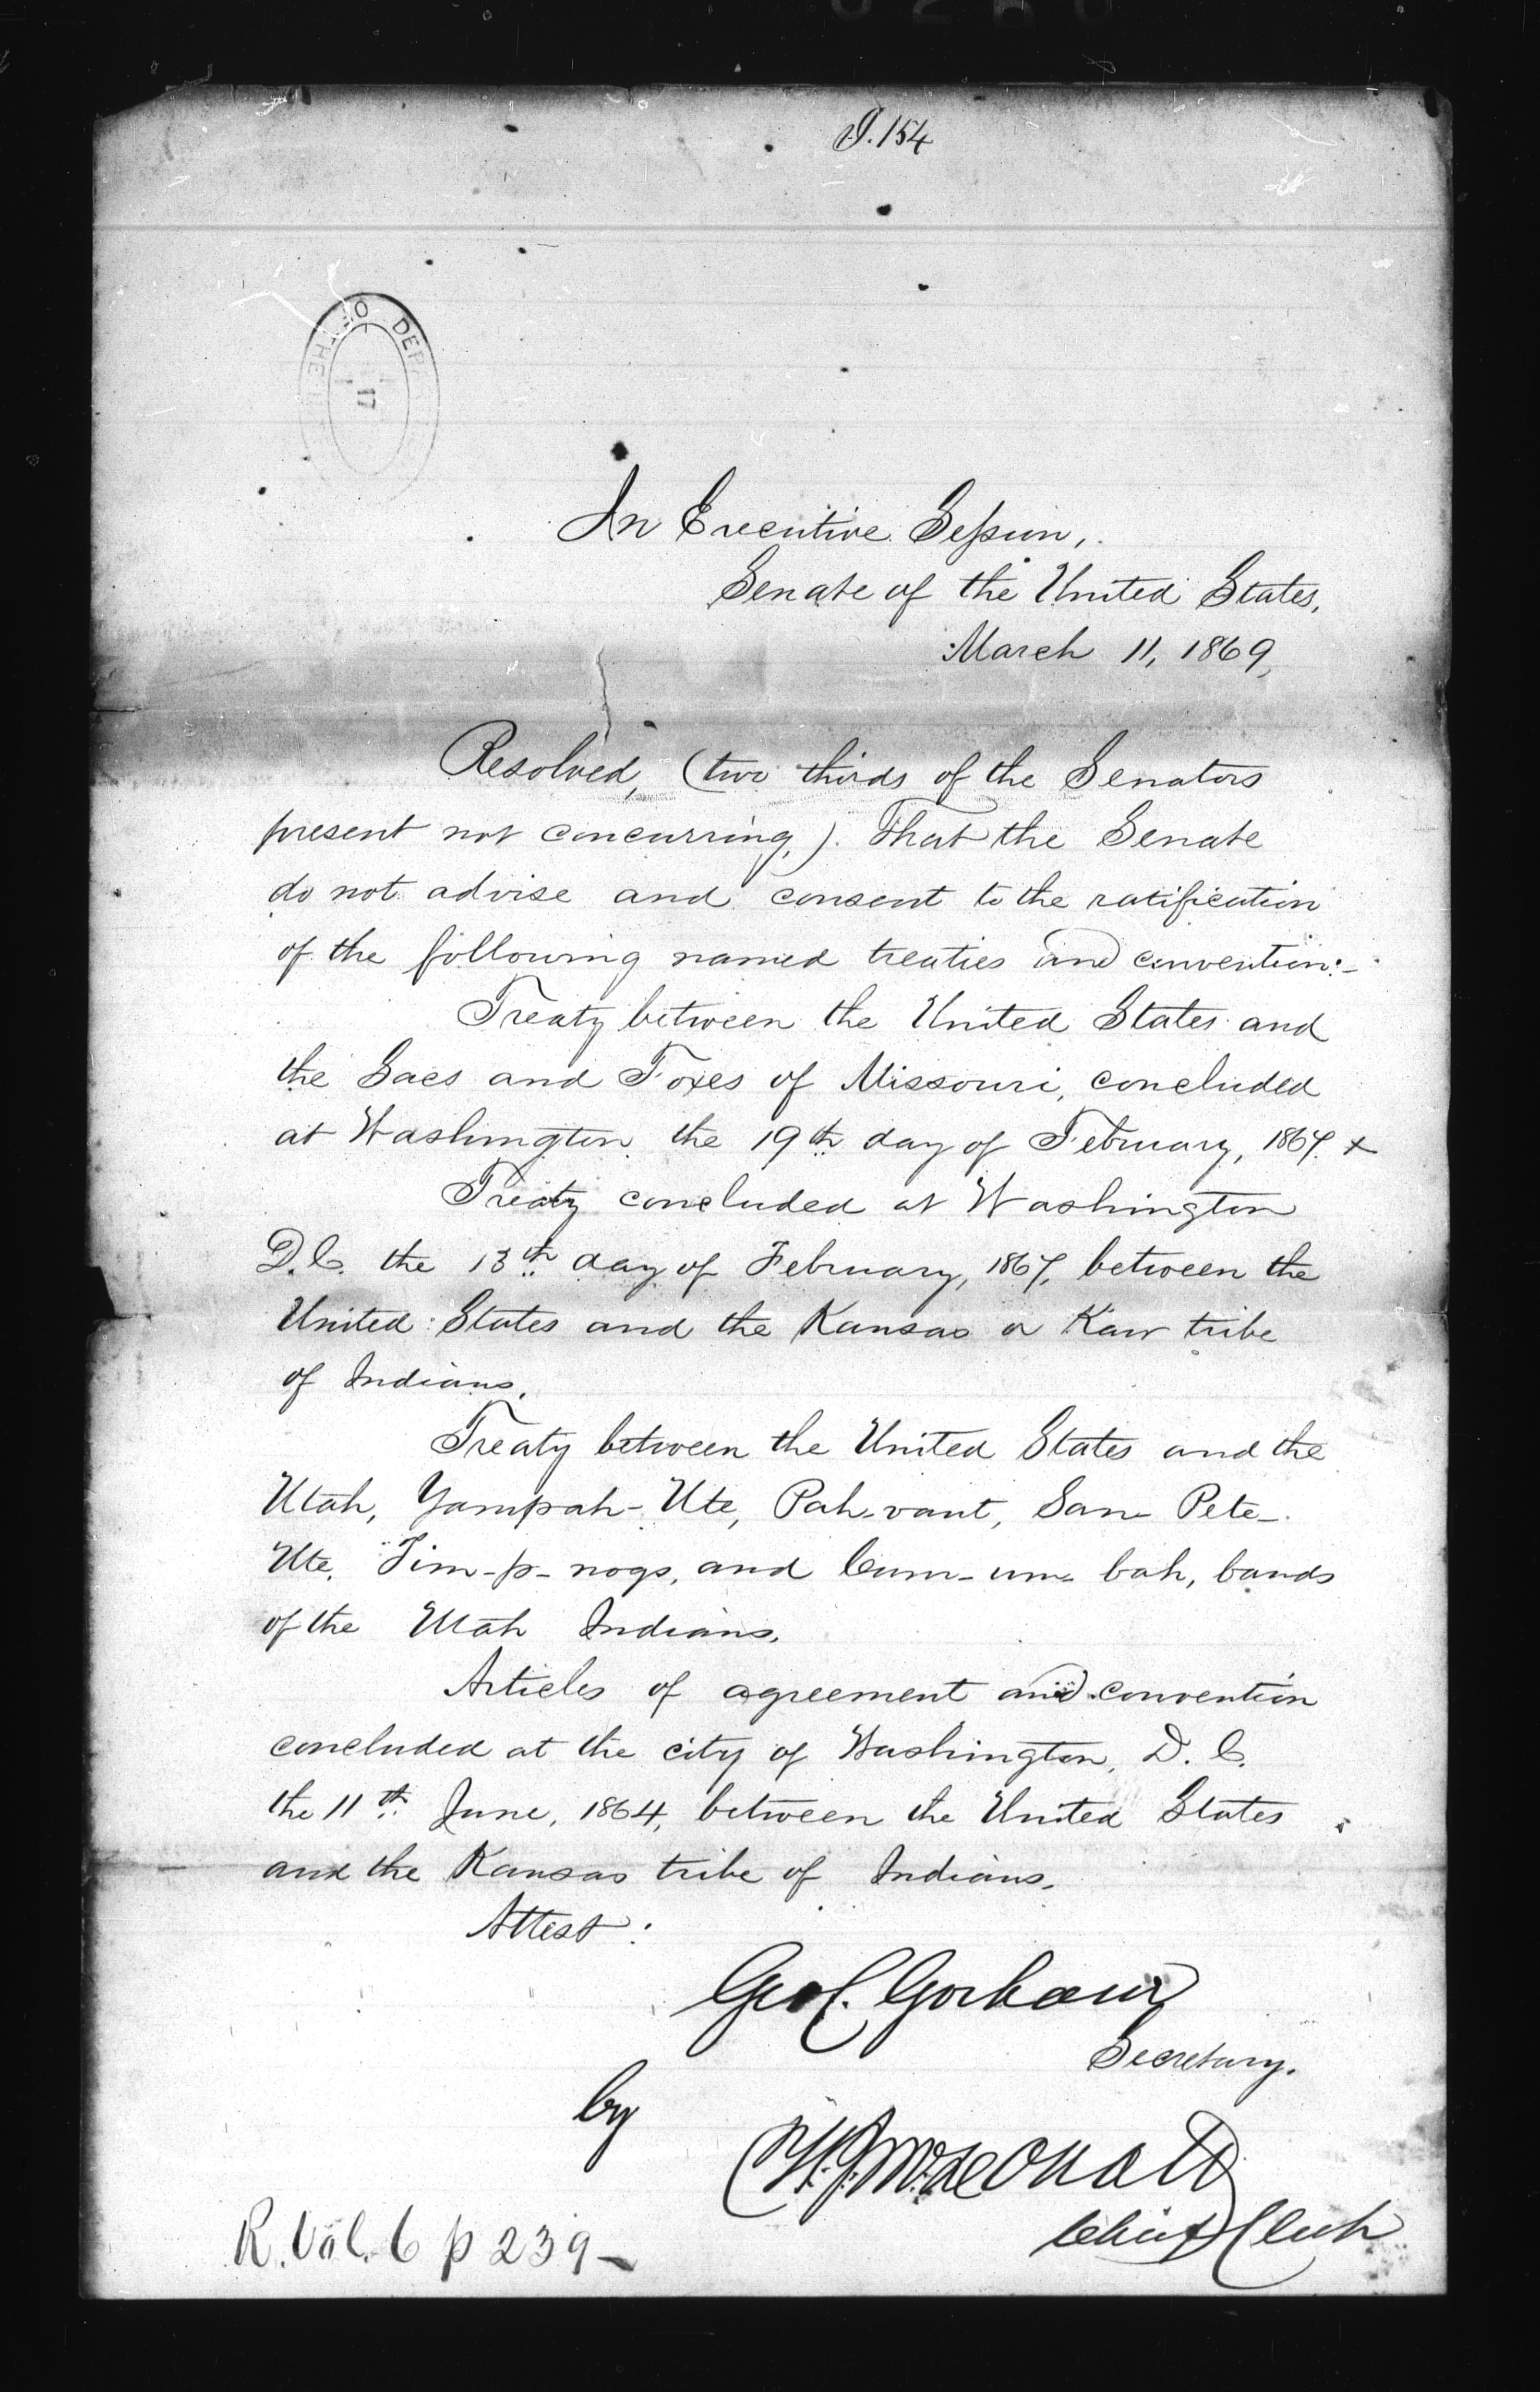 I. 154
OF THE
DEP
17
In Executive Session,
Senate of the United States,
March 11, 1869,
Resolved, (two thirds of the Senators
present not concurring,). That the Senate
do not advise and consent to the ratification
of the following named treaties and convention:-
Treaty between the United States and
the Sacs and Foxes of Missouri, concluded
at Washington the 19th day of February, 1867. x
Treaty concluded at Washington
D.C. the 13th day of February, 1867, between the
United States and the Kansas or Kaw tribe
of Indians.
Treaty between the United States and the
Utah, Yampah-Ute, Pah-vant, San Pete-
Ute, Tim-p-nogs, and Cum-um-bah, bands
of the Utah Indians.
Articles of agreement and convention
concluded at the city of Washington, D.C.
the 11th June, 1864, between the United States
and the Kansas tribe of Indians.
Attest:
Geo C. Gorham
Secretary.
by
W. J. McDonald
Chief Clerk
R. Vol. 6 p 239-